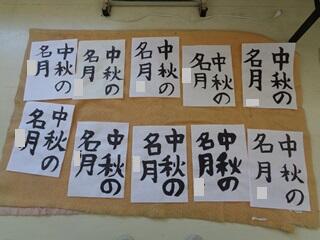 中秋の
名月
中秋の
名月
中秋の
名月
中秋の
名月
中秋の
名月
中秋の
名月
中秋の
名月
中秋の
名月
中秋の
名月
中秋の
名月